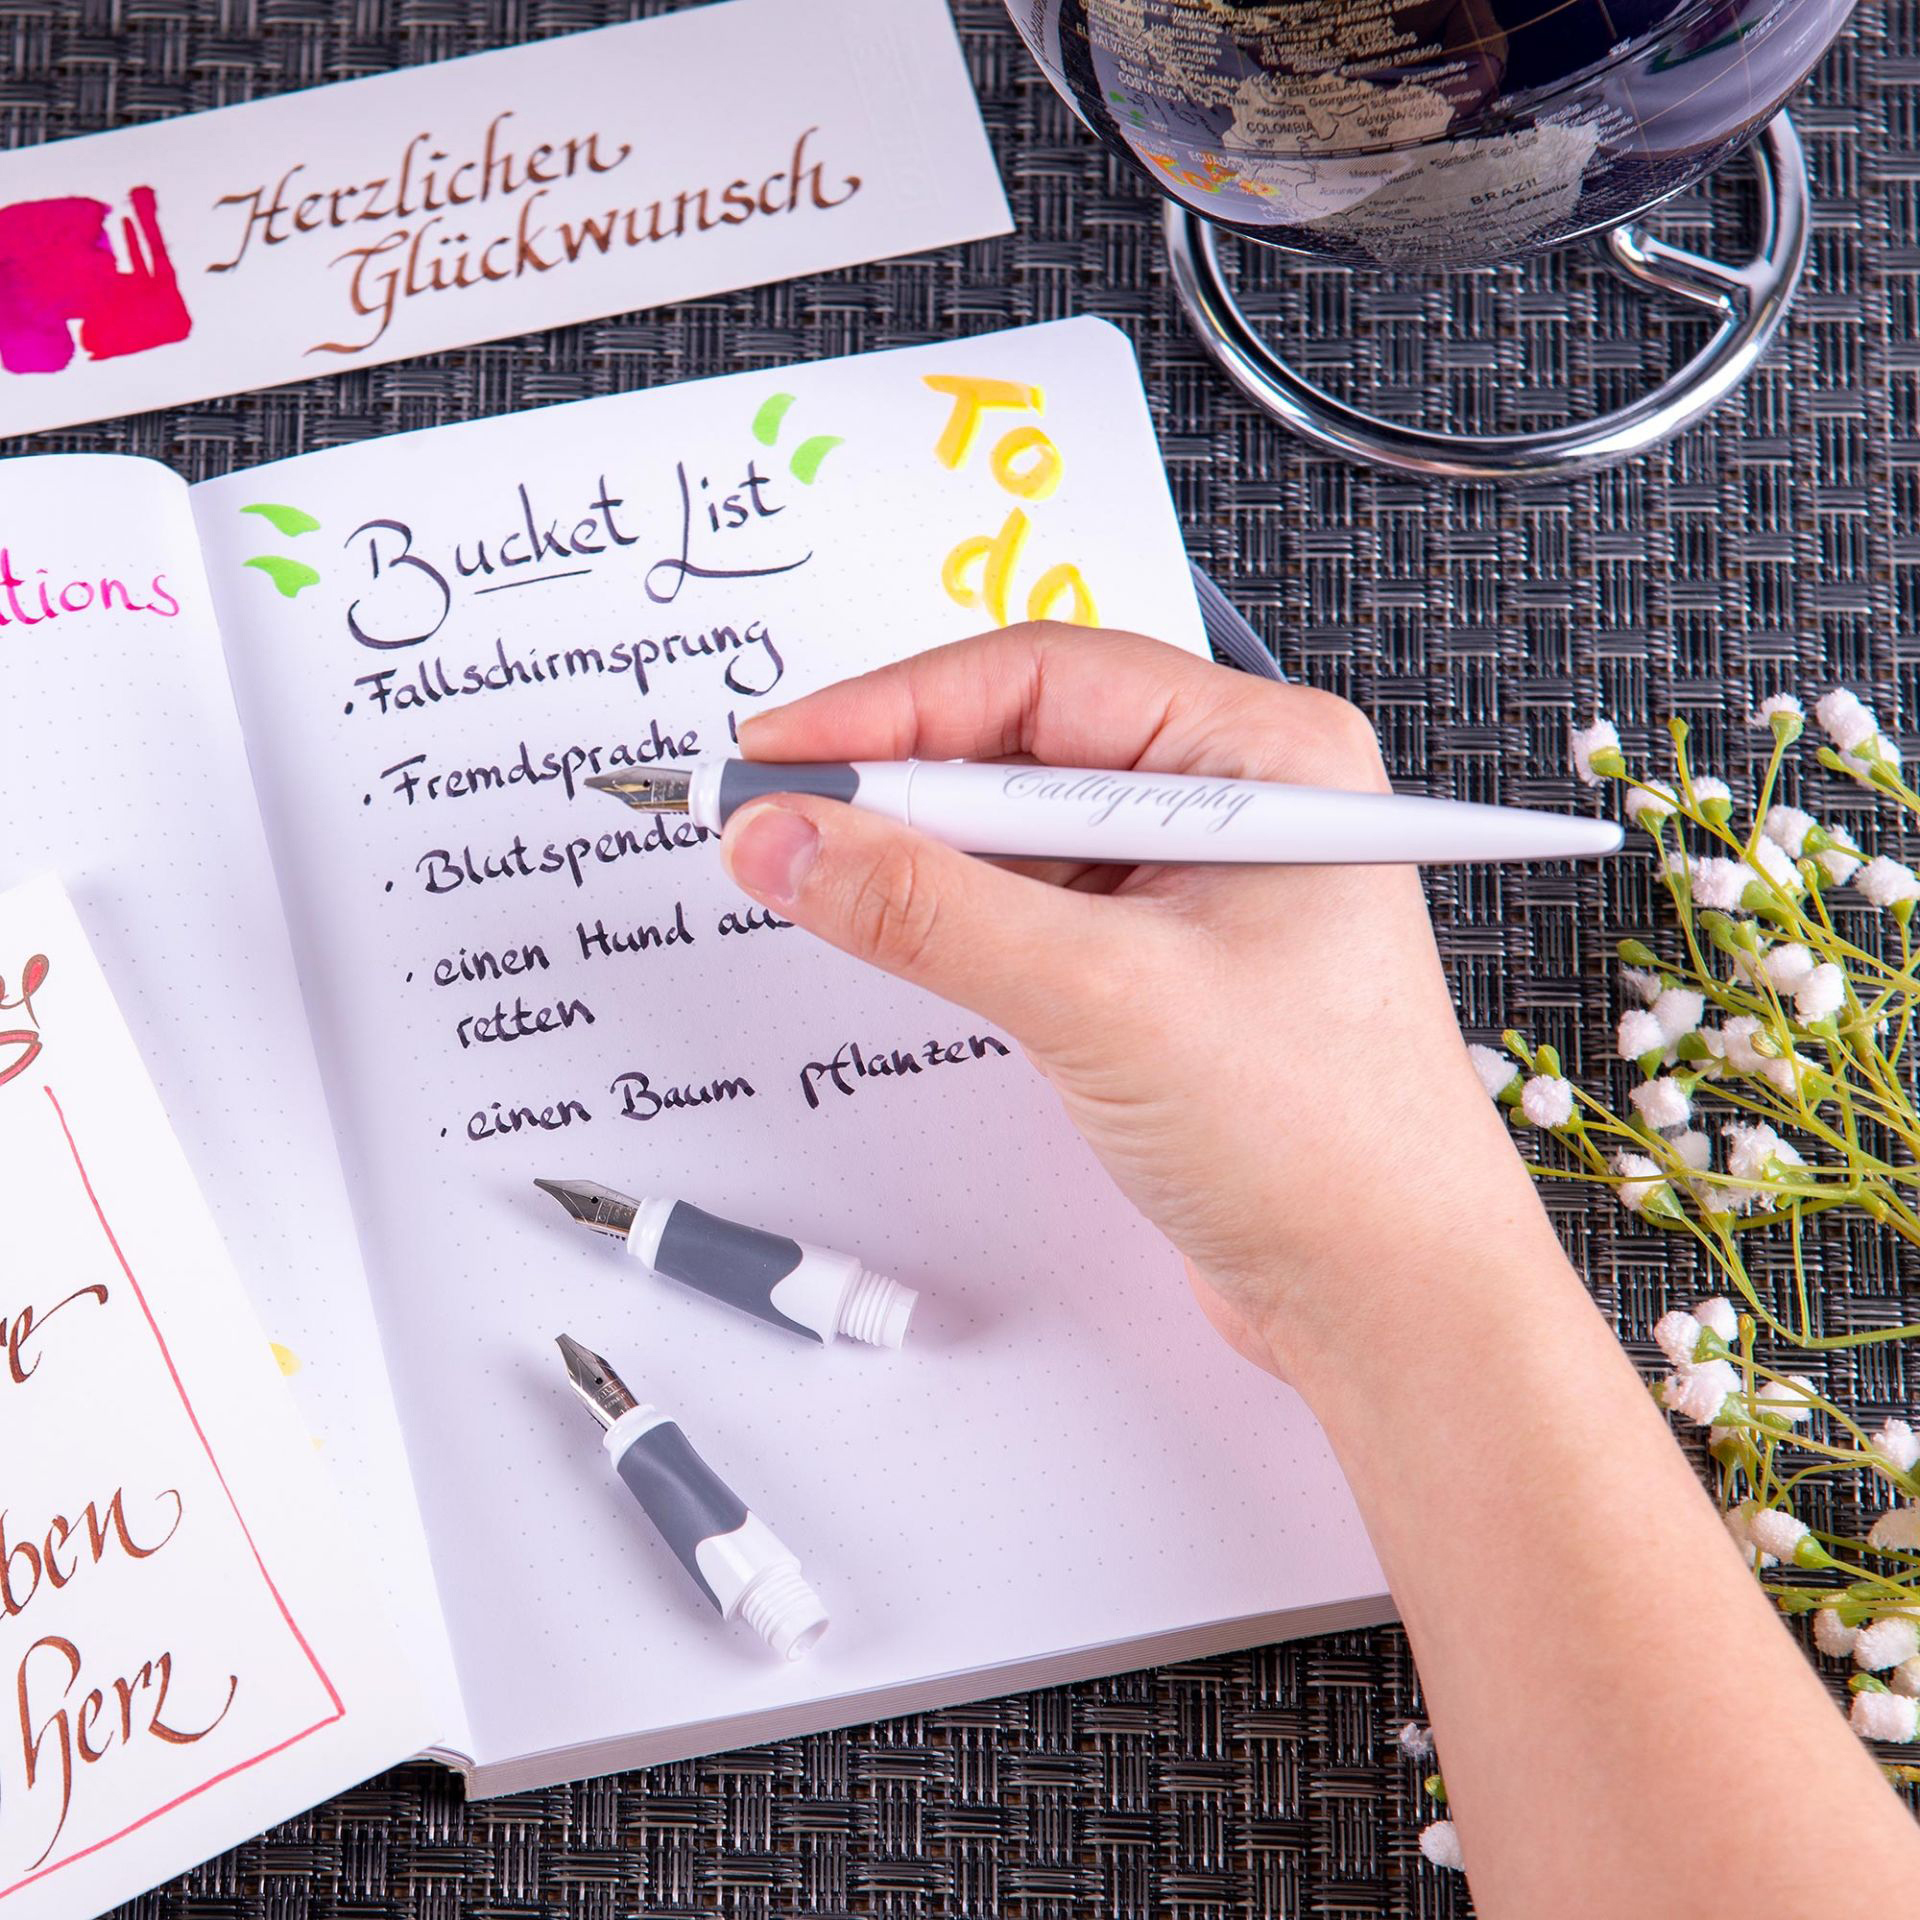 Herzlichen
Glückwunsch
Bucket List
To
do
· Fallschirmsprung
· Fremdsprache
· Blutspenden
· einen Hund
retten
· einen Baum pflanzen
Calligraphy
tions
ben
herz
COSTA RICA
PANAMA
VENEZUELA
COLOMBIA
GUYANA
BRAZIL